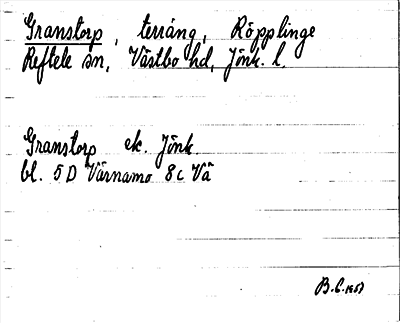 Granstorp, terräng, Röpplinge
Reftele sn, Västbo hd, Jönk. l.
Granstorp ek. Jönk.
bl. 5D Värnamo 8c Vä
B.C. 1967